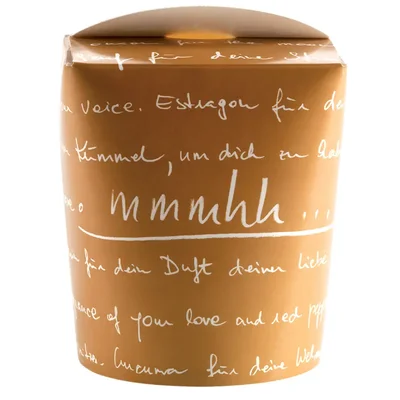 für deine
voice. Estragon für
Kümmel, um dich zu
mmmhh...
für dein Duft deiner Liebe
of your love and red
Curcuma für deine